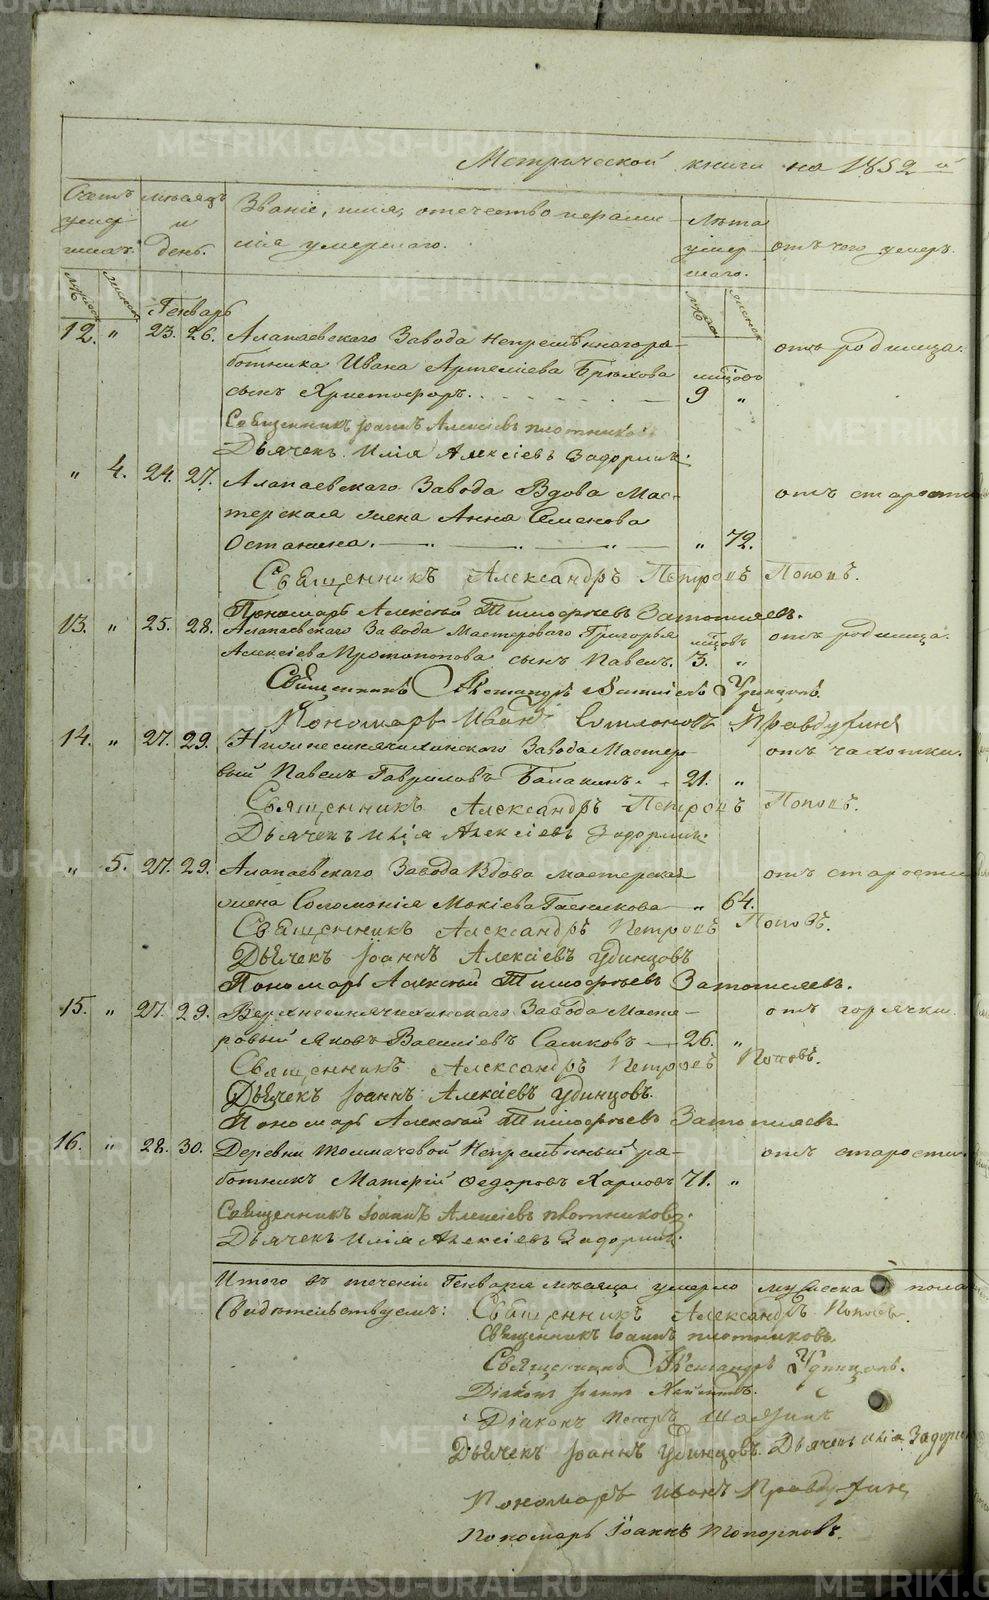 Метрической книги на 1852 й
Счетъ умер шихъ.
Мѣсяцъ и день.
Званіе, имя, отечество и фами лія умершаго.
Лѣта умер шаго.
отъ чего умеръ.
Генварь
12. " 23. 26. Алапаевскаго Завода Непремѣннаго ра- отъ родимца.
ботника Ивана Артеміева Брюхова мѣсцовъ
сынъ Христофоръ. 9 "
Священникъ Іоаннъ Алексіевъ Плотниковъ
Дьячекъ Илія Алексіевъ Задоринъ.
" 4. 24. 27. Алапаевскаго Завода Вдова Мас- отъ старости
терская жена Анна Семенова
Останина. " 72.
Священникъ Александръ Петровъ Поповъ.
Пономарь Алексѣй Тимофѣевъ Затопляевъ.
13. " 25. 28. Алапаевскаго Завода Мастероваго Григорья мѣсцовъ отъ родимца.
Алексіева Протопопова сынъ Павелъ. 3. "
Священникъ Александръ Удинцовъ.
Пономарь Иванъ Правдухинъ
14. " 27. 29. Нижнесинячихинскаго Завода Мастер отъ чахотки.
вый Павелъ Гавриловъ Балакинъ. 21. "
Священникъ Александръ Петровъ Поповъ.
Дьячекъ Илія Алексіевъ Задоринъ.
" 5. 27. 29. Алапаевскаго Завода Вдова мастерская отъ старости
жена Соломонія Мокіева " 64.
Священникъ Александръ Петровъ Поповъ.
Дьячекъ Іоаннъ Алексіевъ Удинцовъ
Пономарь Алексѣй Тимофѣевъ Затопляевъ.
15. " 27. 29. Верхнесинячихинскаго Завода Масте- отъ горячки.
ровый Яковъ Василіевъ 26. "
Священникъ Александръ Петровъ Поповъ.
Дьячекъ Іоаннъ Алексіевъ Удинцовъ.
Пономарь Алексѣй Тимофѣевъ Затопляевъ
16. " 28. 30. Деревни Толмачовой Непремѣнный ра- отъ старости.
ботникъ Ѳедоровъ Харловъ 71. "
Священникъ Іоаннъ Алексіевъ Плотниковъ.
Дьячекъ Илія Алексіевъ Задоринъ.
Итого въ теченіи Генваря мѣсяца умерло мужеска пола
Свидѣтельствуемъ: Священникъ Александръ Поповъ.
Священникъ Іоаннъ Плотниковъ.
Священникъ Александръ Удинцовъ.
Діаконъ Іоаннъ
Діаконъ Петръ
Дьячекъ Іоаннъ Удинцовъ. Дьячекъ Илія Задорин
Пономарь Иванъ Правдухинъ
Пономарь Іоаннъ Топорковъ.
METRIKI.GASO-URAL.RU